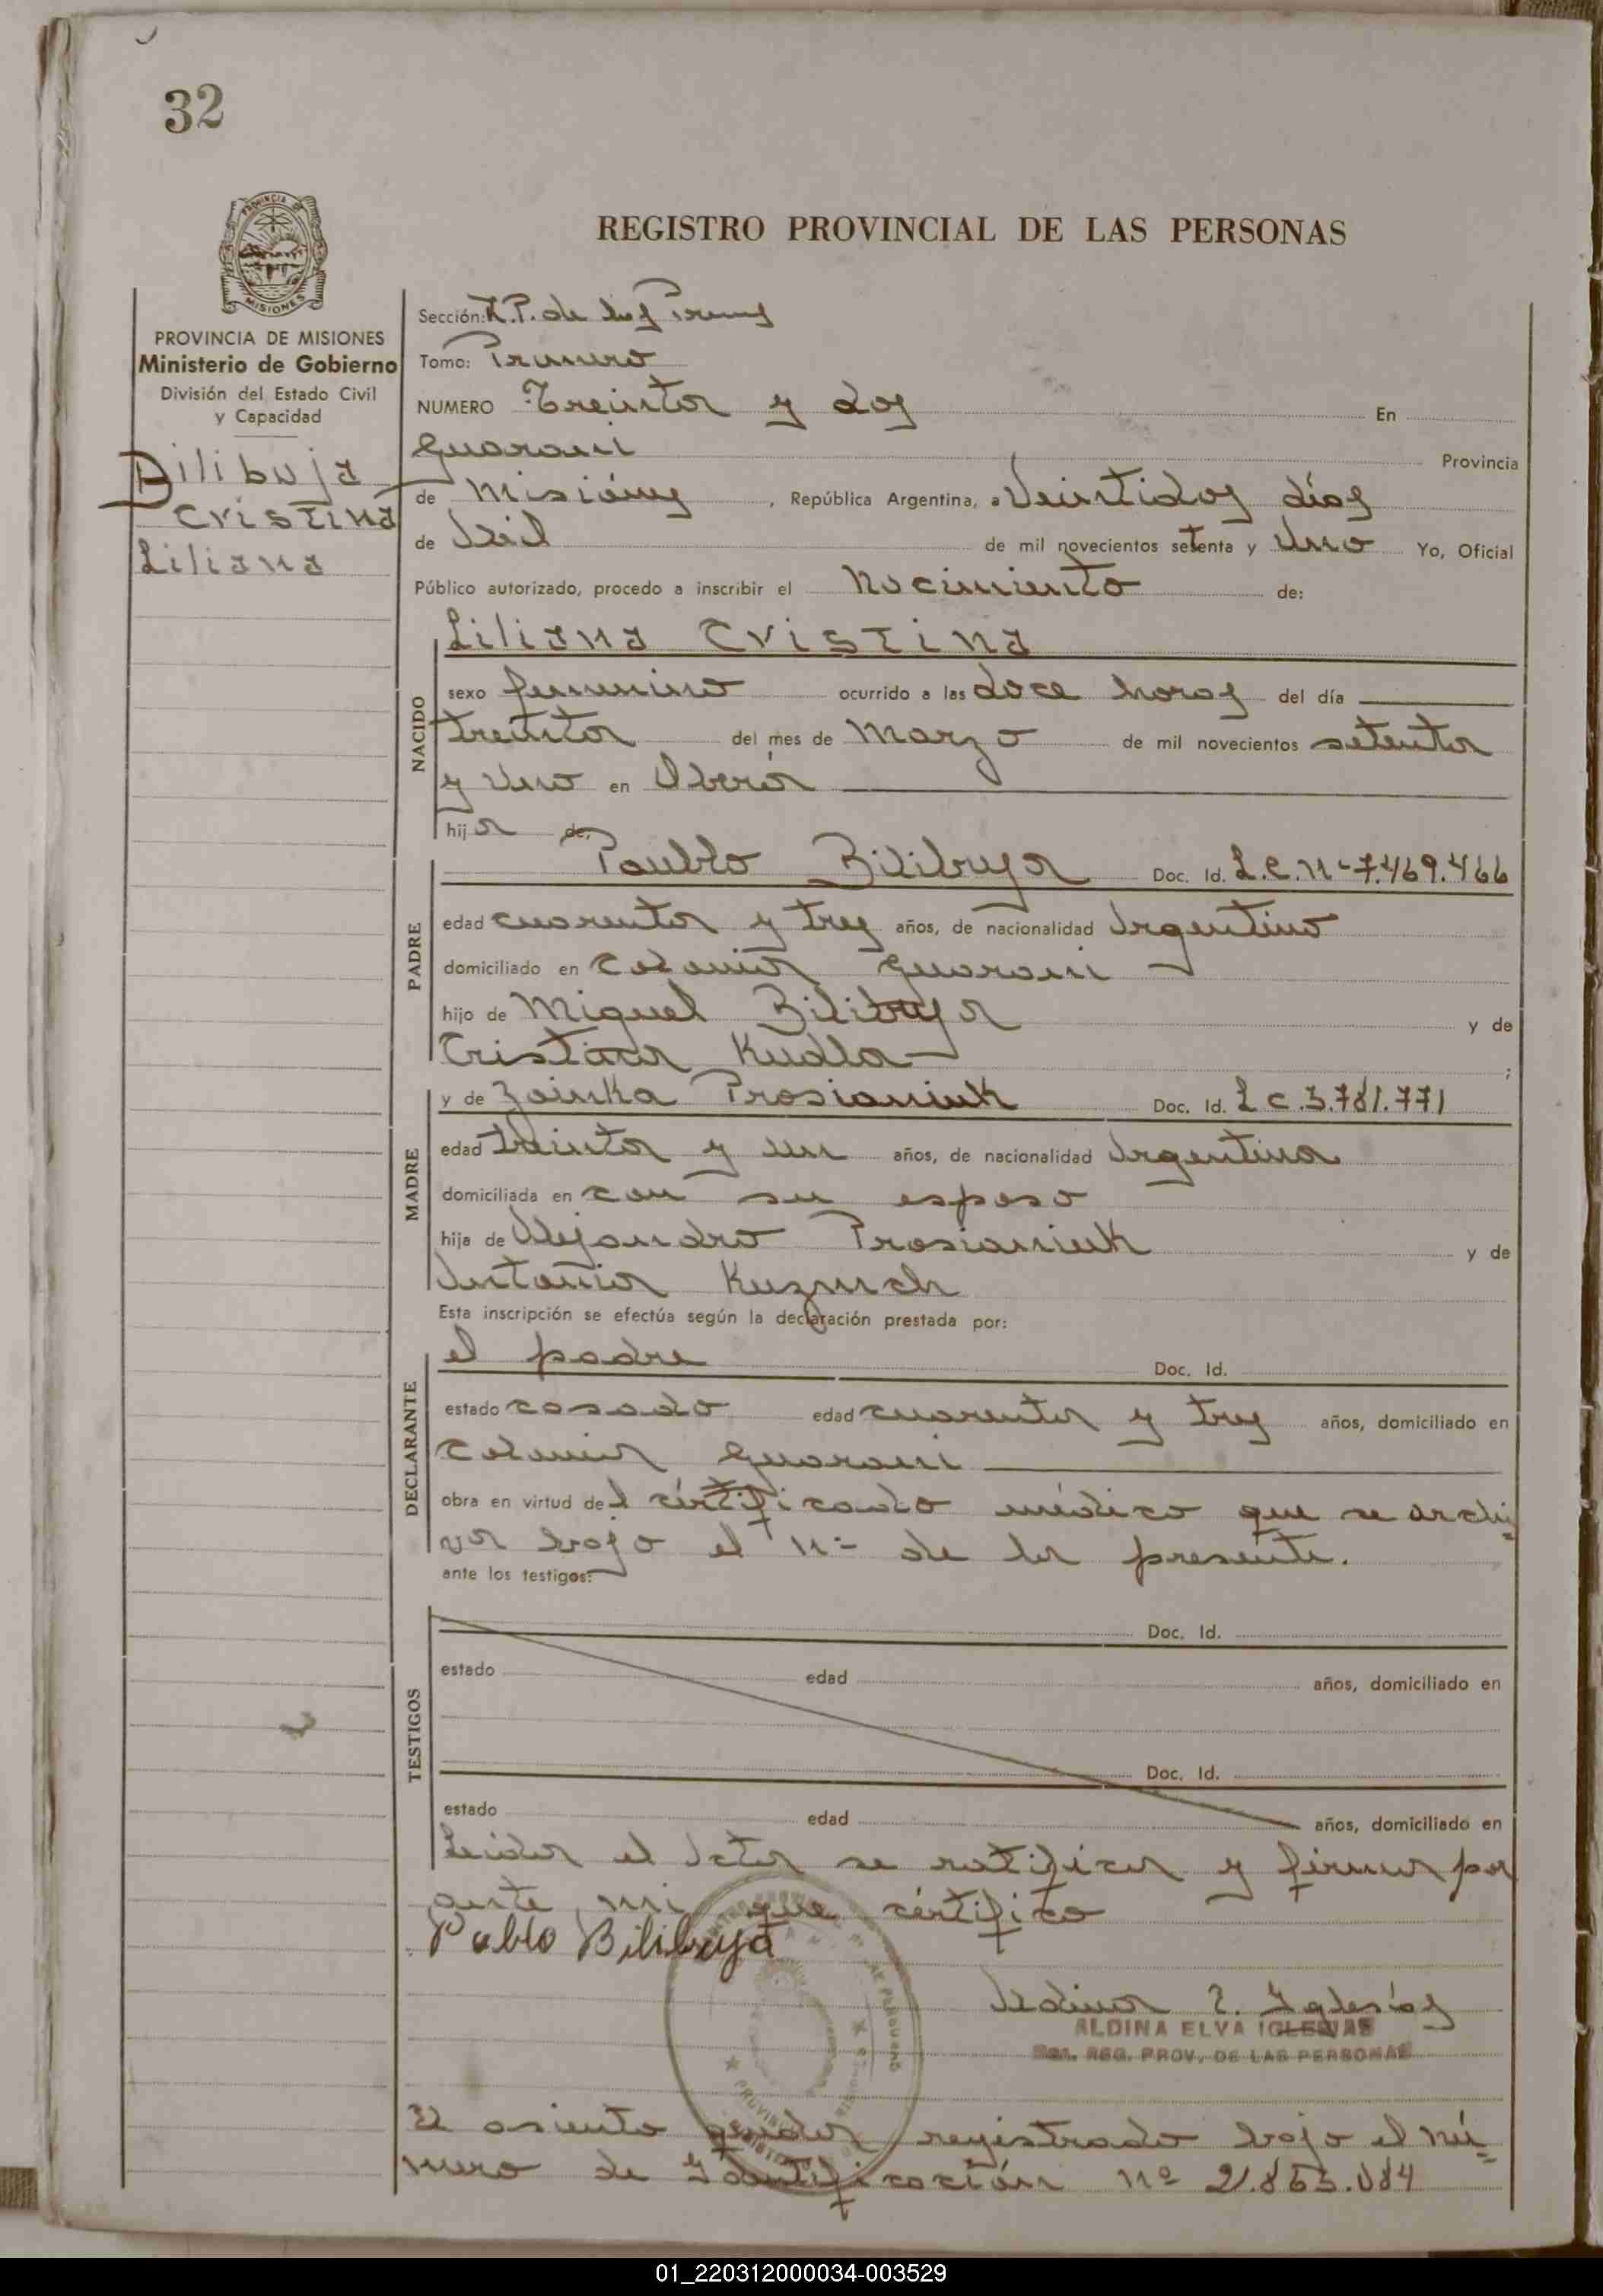 32
REGISTRO PROVINCIAL DE LAS PERSONAS
MISIONES
PROVINCIA DE MISIONES
Ministerio de Gobierno
División del Estado Civil
y Capacidad
Bilibuja
Cristina
Liliana
Sección: R.P. de las
Tomo: Primero
NUMERO Treinta y dos En
Guarani Provincia
de Misiones, República Argentina, a Veintidos días
de Abril de mil novecientos setenta y Uno Yo, Oficial
Público autorizado, procedo a inscribir el Nacimiento de:
NACIDO
Liliana Cristina
sexo femenino ocurrido a las doce horas del día
treinta del mes de Marzo de mil novecientos setenta
y Uno en Oberá
hija de:
PADRE
Paublo Bilibuja Doc. Id. L.E. Nº 7.469.466
edad cuarenta y tres años, de nacionalidad Argentino
domiciliado en Colonia Guarani
hijo de Miguel Bilibuja y de
Kudla ;
MADRE
y de Zainka Prosianiuk Doc. Id. L C.3.781.771
edad treinta y un años, de nacionalidad Argentina
domiciliada en con su esposo
hija de Alejandro Prosianiuk y de
Antonia
Esta inscripción se efectúa según la declaración prestada por:
DECLARANTE
el padre Doc. Id.
estado casado edad cuarenta y tres años, domiciliado en
Colonia Guarani
obra en virtud del cértificado médico que se archi
va bajo el Nº de la presente.
ante los testigos:
TESTIGOS
Doc. Id.
estado edad años, domiciliado en
Doc. Id.
estado edad años, domiciliado en
Leida el Acta se ratifica y firma por
ante mi que cértifico
Pablo Bilibuja
Aldina E. Iglesias
ALDINA ELVA IGLESIAS
REG. PROV. DE LAS PERSONAS
El asiento queda registrado bajo el nú-
mero de Identificación nº 21.863.084
01_220312000034-003529